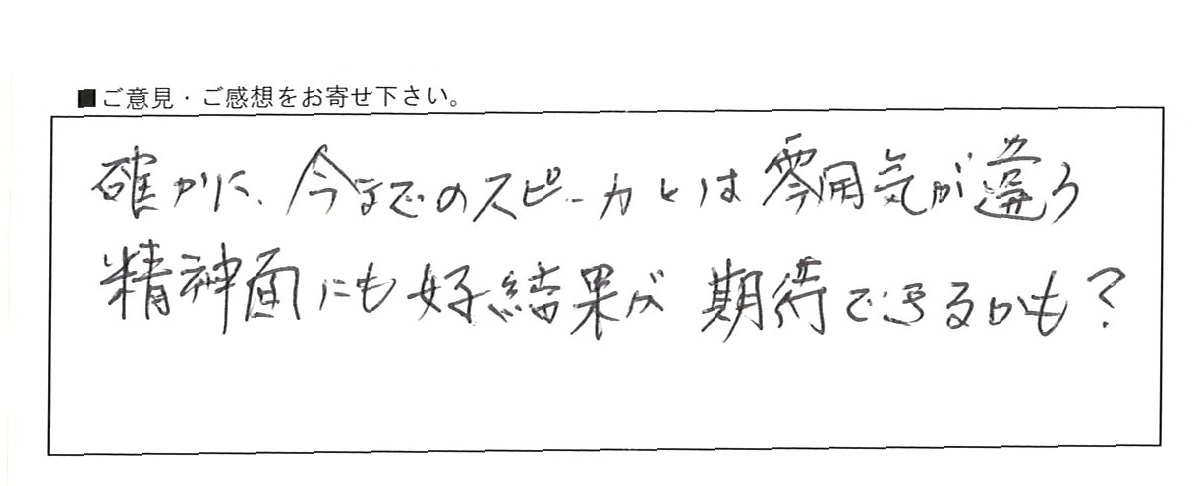 ■ご意見・ご感想をお寄せ下さい。
確かに、今までのスピーカとは雰囲気が違う
精神面にも好結果が期待できるかも？